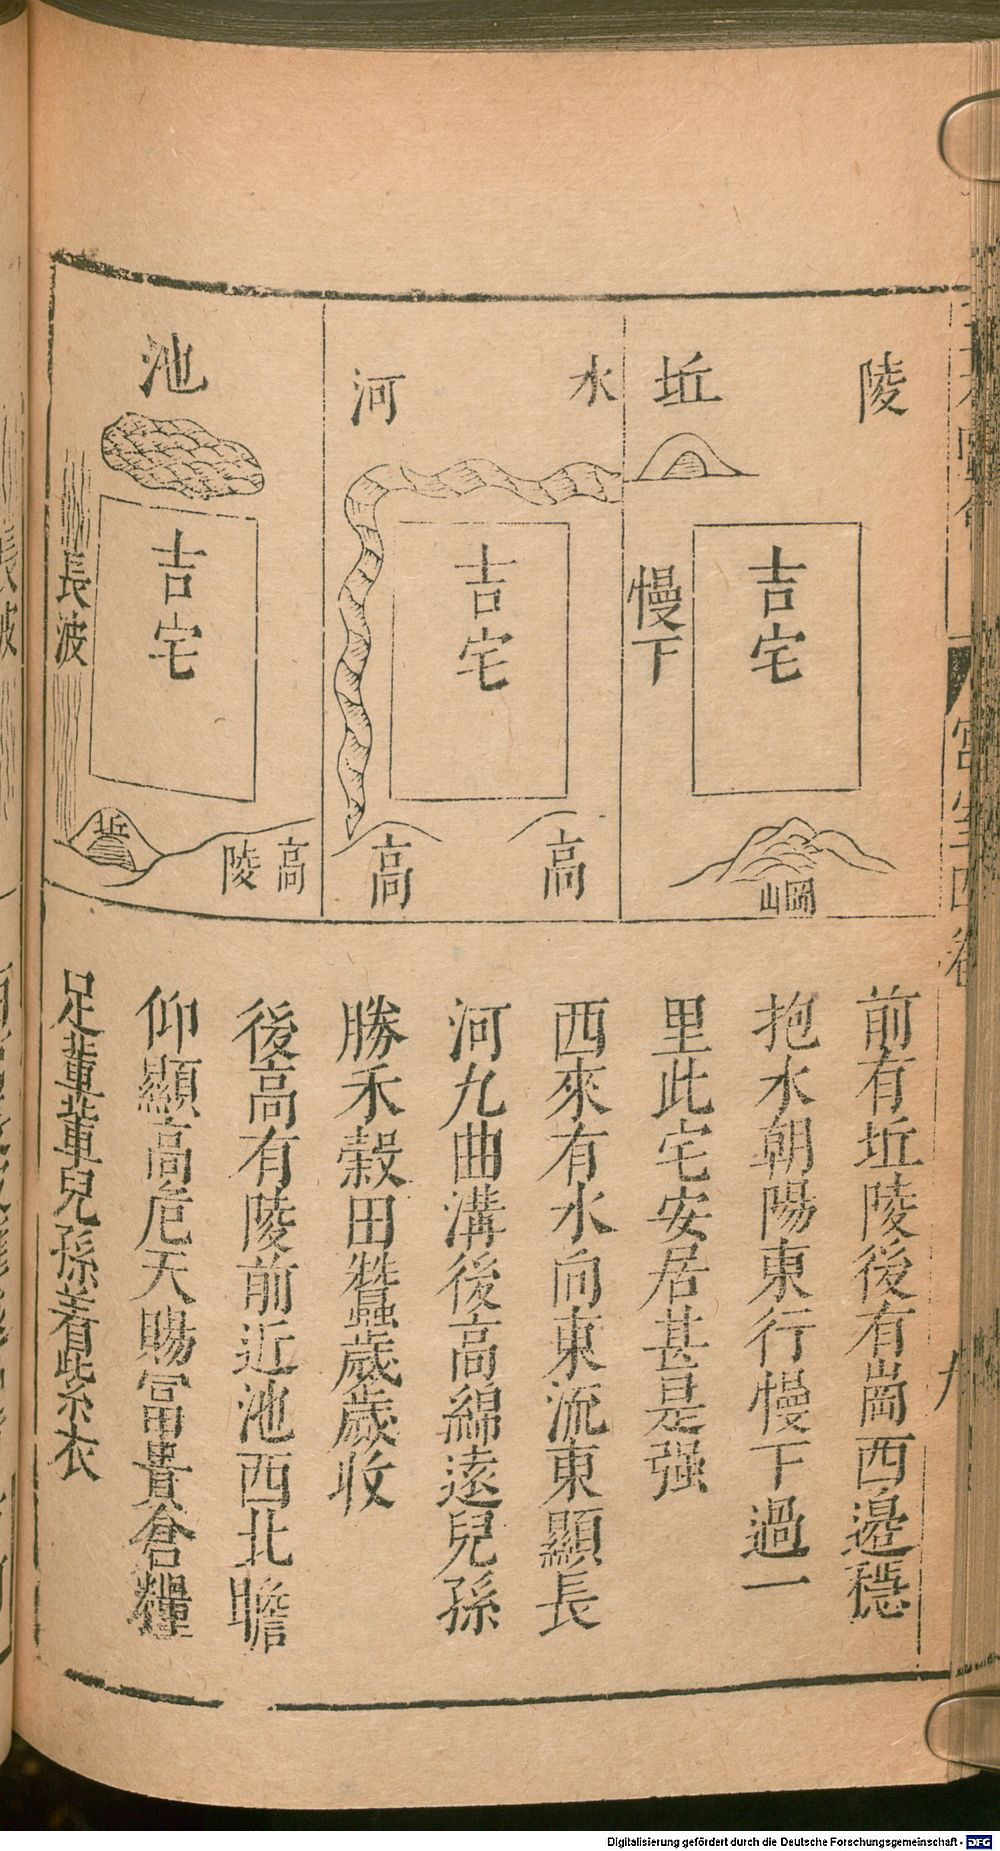 陵 坵
吉宅
慢下
崗山
水 河
吉宅
高 高
池
吉宅
長波
高陵
坵
前有坵陵後有崗西邉穏
抱水朝陽東行慢下過一
里此宅安居甚是强
西來有水向東流東顯長
河九曲溝後高綿遠兒孫
勝禾穀田蠶歲歲收
後高有陵前近池西北瞻
仰顯高危天賜冨貴倉糧
足軰軰兒孫着紫衣
宫室四卷
九
長波
Digitalisierung gefördert durch die Deutsche Forschungsgemeinschaft - DFG